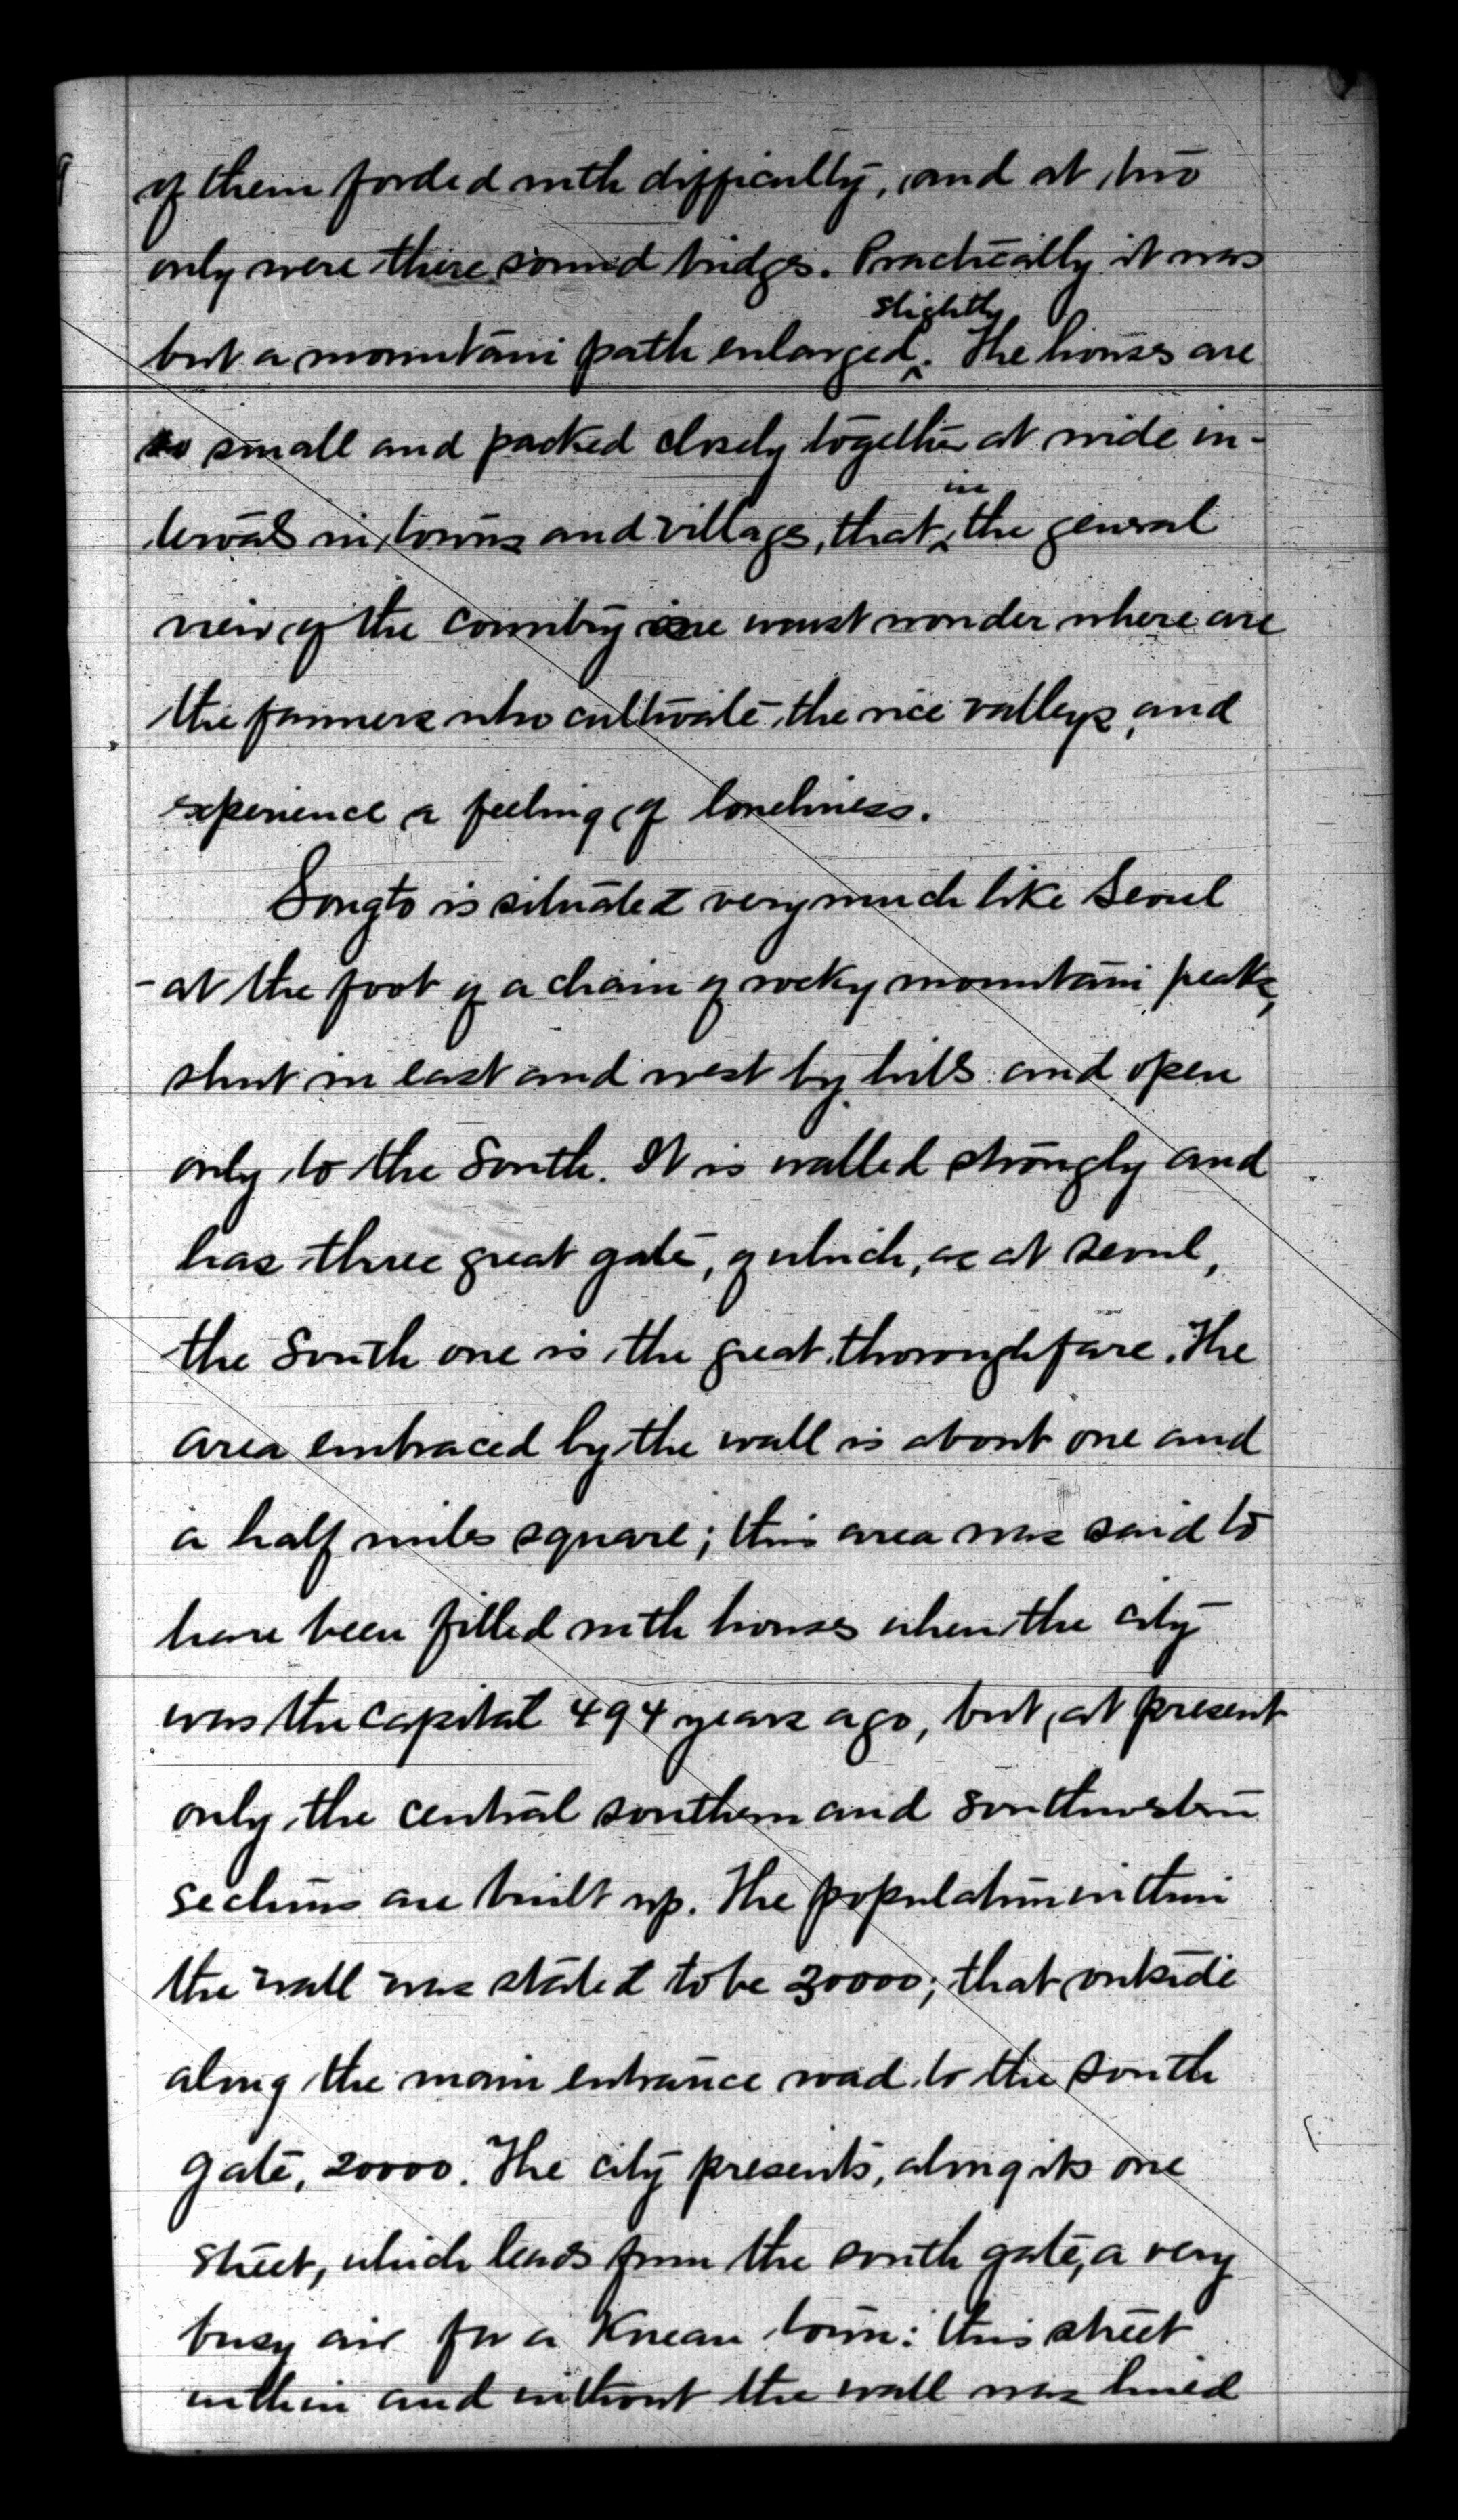 of them forded with difficulty, and at two
only were there sound bridges. Practically it was
slightly
but a mountain path enlarged‸. The houses are
so small and packed closely together at wide in-
in
tervals in towns and villages, that‸ the general
view of the country one must wonder where are
the farmers who cultivate the rice valleys, and
experience a feeling of loneliness.
Songto is situated very much like Seoul
- at the foot of a chain of rocky mountain peaks,
shut in east and west by hills and open
only to the South. It is walled strongly and
has three great gate, of which, as at Seoul,
the South one is the great thoroughfare. The
area embraced by the wall is about one and
a half miles square; this area was said to
have been filled with houses when the city
was the capital 494 years ago, but, at present
only the central southern and southwestern
sections are built up. The population within
the wall was stated to be 30000; that outside
along the main entrance road to the south
gate, 20000. The city presents, along its one
street, which leads from the south gate, a very
busy air for a Korean town: this street
within and without the wall was lined